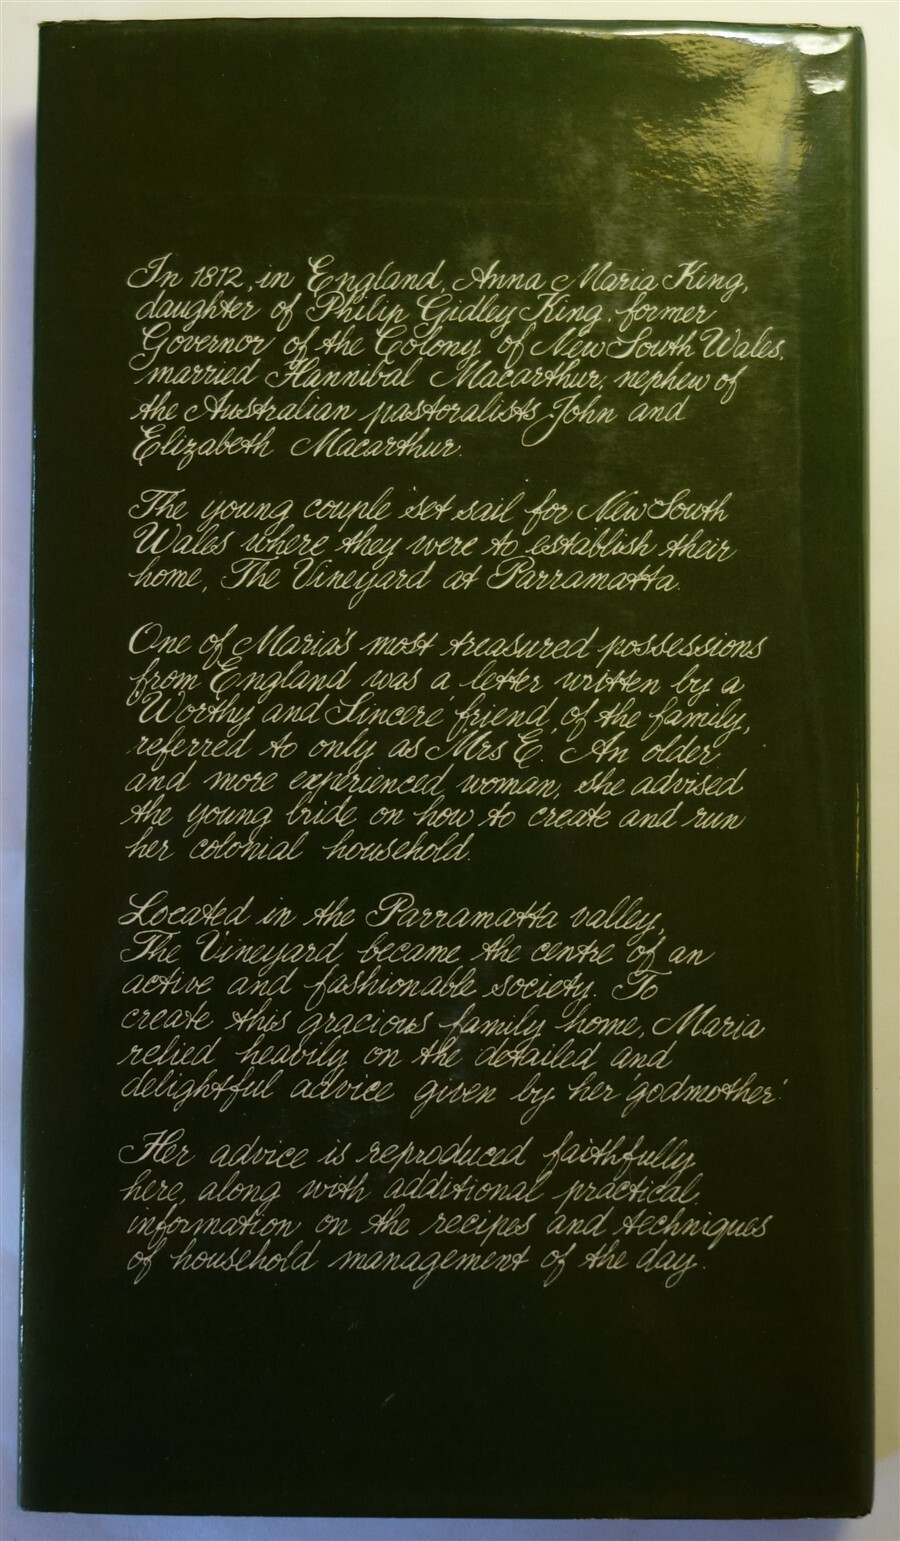 In 1812, in England, Anna Maria King,
daughter of Philip Gidley King, former
Governor of the Colony of New South Wales,
married Hannibal Macarthur, nephew of
the Australian pastoralists John and
Elizabeth Macarthur.
The young couple set sail for New South
Wales where they were to establish their
home, The Vineyard at Parramatta.
One of Maria's most treasured possessions
from England was a letter written by a
'Worthy and Sincere' friend of the family,
referred to only as 'Mrs E'. An older
and more experienced woman, she advised
the young bride on how to create and run
her colonial household.
Located in the Parramatta valley,
The Vineyard became the centre of an
active and fashionable society. To
create this gracious family home, Maria
relied heavily on the detailed and
delightful advice given by her 'godmother'.
Her advice is reproduced faithfully
here, along with additional practical
information on the recipes and techniques
of household management of the day.